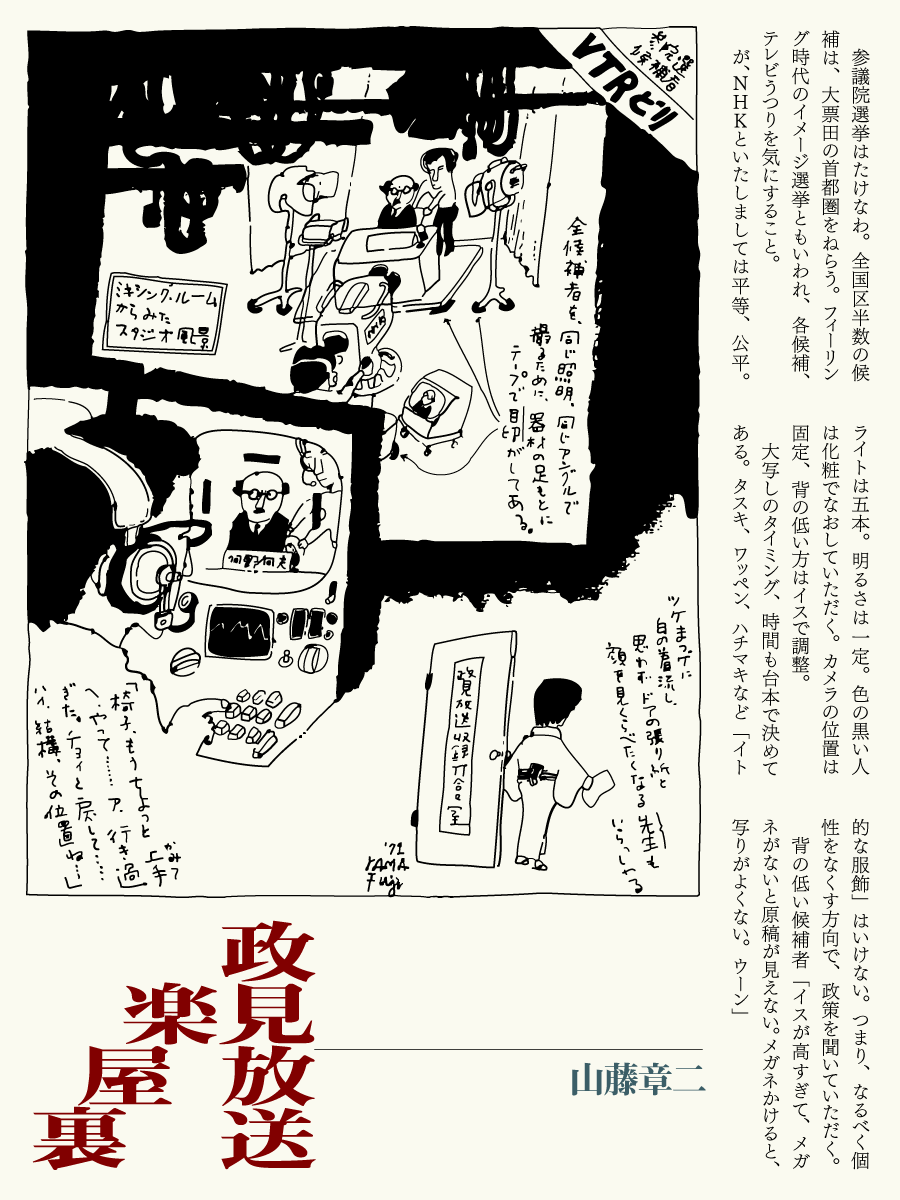 参議院選挙はたけなわ。全国区半数の候
補は、大票田の首都圏をねらう。フィーリン
グ時代のイメージ選挙ともいわれ、各候補、
テレビうつりを気にすること。
が、NHKといたしましては平等、公平。
ライトは五本。明るさは一定。色の黒い人
は化粧でなおしていただく。カメラの位置は
固定、背の低い方はイスで調整。
大写しのタイミング、時間も台本で決めて
ある。タスキ、ワッペン、ハチマキなど「イト
的な服飾」はいけない。つまり、なるべく個
性をなくす方向で、政策を聞いていただく。
背の低い候補者「イスが高すぎて、メガ
ネがないと原稿が見えない。メガネかけると、
写りがよくない。ウーン」
参院選
候補者
VTRどり
ミキシング・ルーム
からみた
スタジオ風景
全候補者を、同じ照明、同じアングルで
撮るために、器材の足もとに
テープで目印がしてある。
何野何夫
ツケまつゲに
白の着流し、
思わず ドアの張り紙と
顔を見くらべたくなる 先生も
いらっしゃる
政見放送収録打合室
「椅子、もうちょっと 上手
かみて
へ、やって……ア、行き過
ぎた。チョイと 戻して……
ハイ、結構、その位置ね…」
'71
YAMA
Fuji
政見放送
楽屋裏
山藤章二